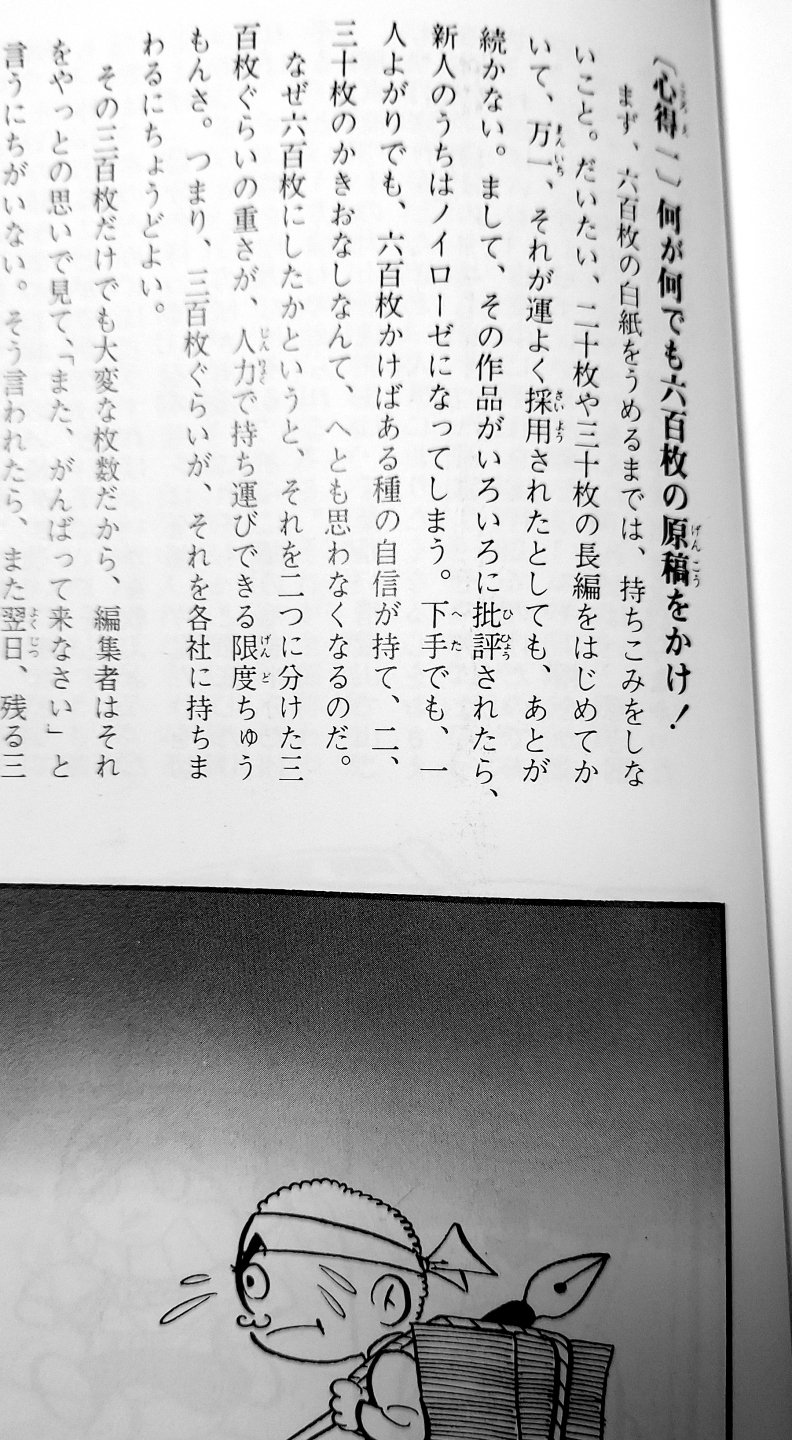 〔心得一〕何が何でも六百枚の原稿をかけ！
まず、六百枚の白紙をうめるまでは、持ちこみをしな
いこと。だいたい、二十枚や三十枚の長編をはじめてか
いて、万一、それが運よく採用されたとしても、あとが
続かない。まして、その作品がいろいろに批評されたら、
新人のうちはノイローゼになってしまう。下手でも、一
人よがりでも、六百枚かけばある種の自信が持て、二、
三十枚のかきおなしなんて、へとも思わなくなるのだ。
なぜ六百枚にしたかというと、それを二つに分けた三
百枚ぐらいの重さが、人力で持ち運びできる限度ちゅう
もんさ。つまり、三百枚ぐらいが、それを各社に持ちま
わるにちょうどよい。
その三百枚だけでも大変な枚数だから、編集者はそれ
をやっとの思いで見て、「また、がんばって来なさい」と
言うにちがいない。そう言われたら、また翌日、残る三